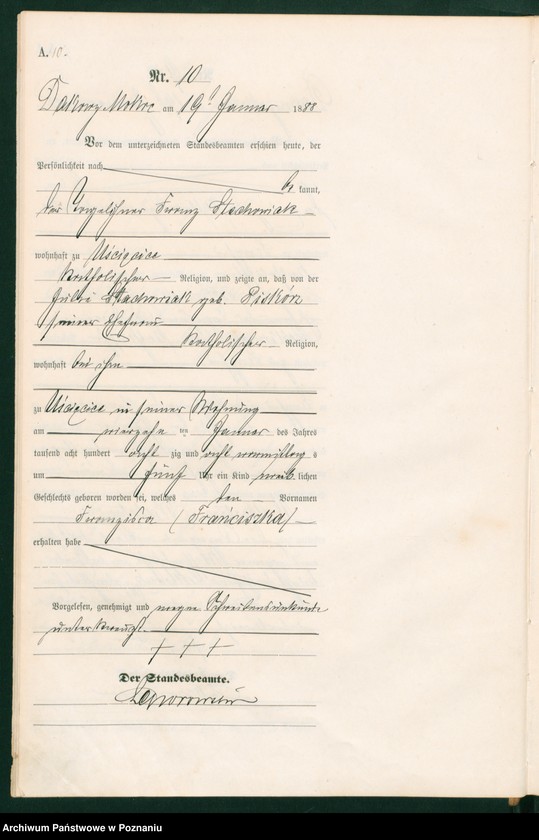 A. 10.
Nr. 10
Dakowy Mokre am 19t Januar 1888
Vor dem unterzeichneten Standesbeamten erschien heute, der
Persönlichkeit nach
be kannt,
der Franz Stachowiak
wohnhaft zu Uścięcice
katholischer Religion, und zeigte an, daß von der
Stachowiak geb. Piskórz
seiner Ehefrau
katholischer Religion,
wohnhaft bei ihm
zu Uścięcice in seiner Wohnung
am vierzehn ten Januar des Jahres
tausend acht hundert acht zig und acht vormittag s
um fünf Uhr ein Kind weib lichen
Geschlechts geboren worden sei, welches den Vornamen
Franziska (Franciszka)
erhalten habe
Vorgelesen, genehmigt und wegen Schreibensunkunde
unterkreuzt.
+ + +
Der Standesbeamte.
Archiwum Państwowe w Poznaniu